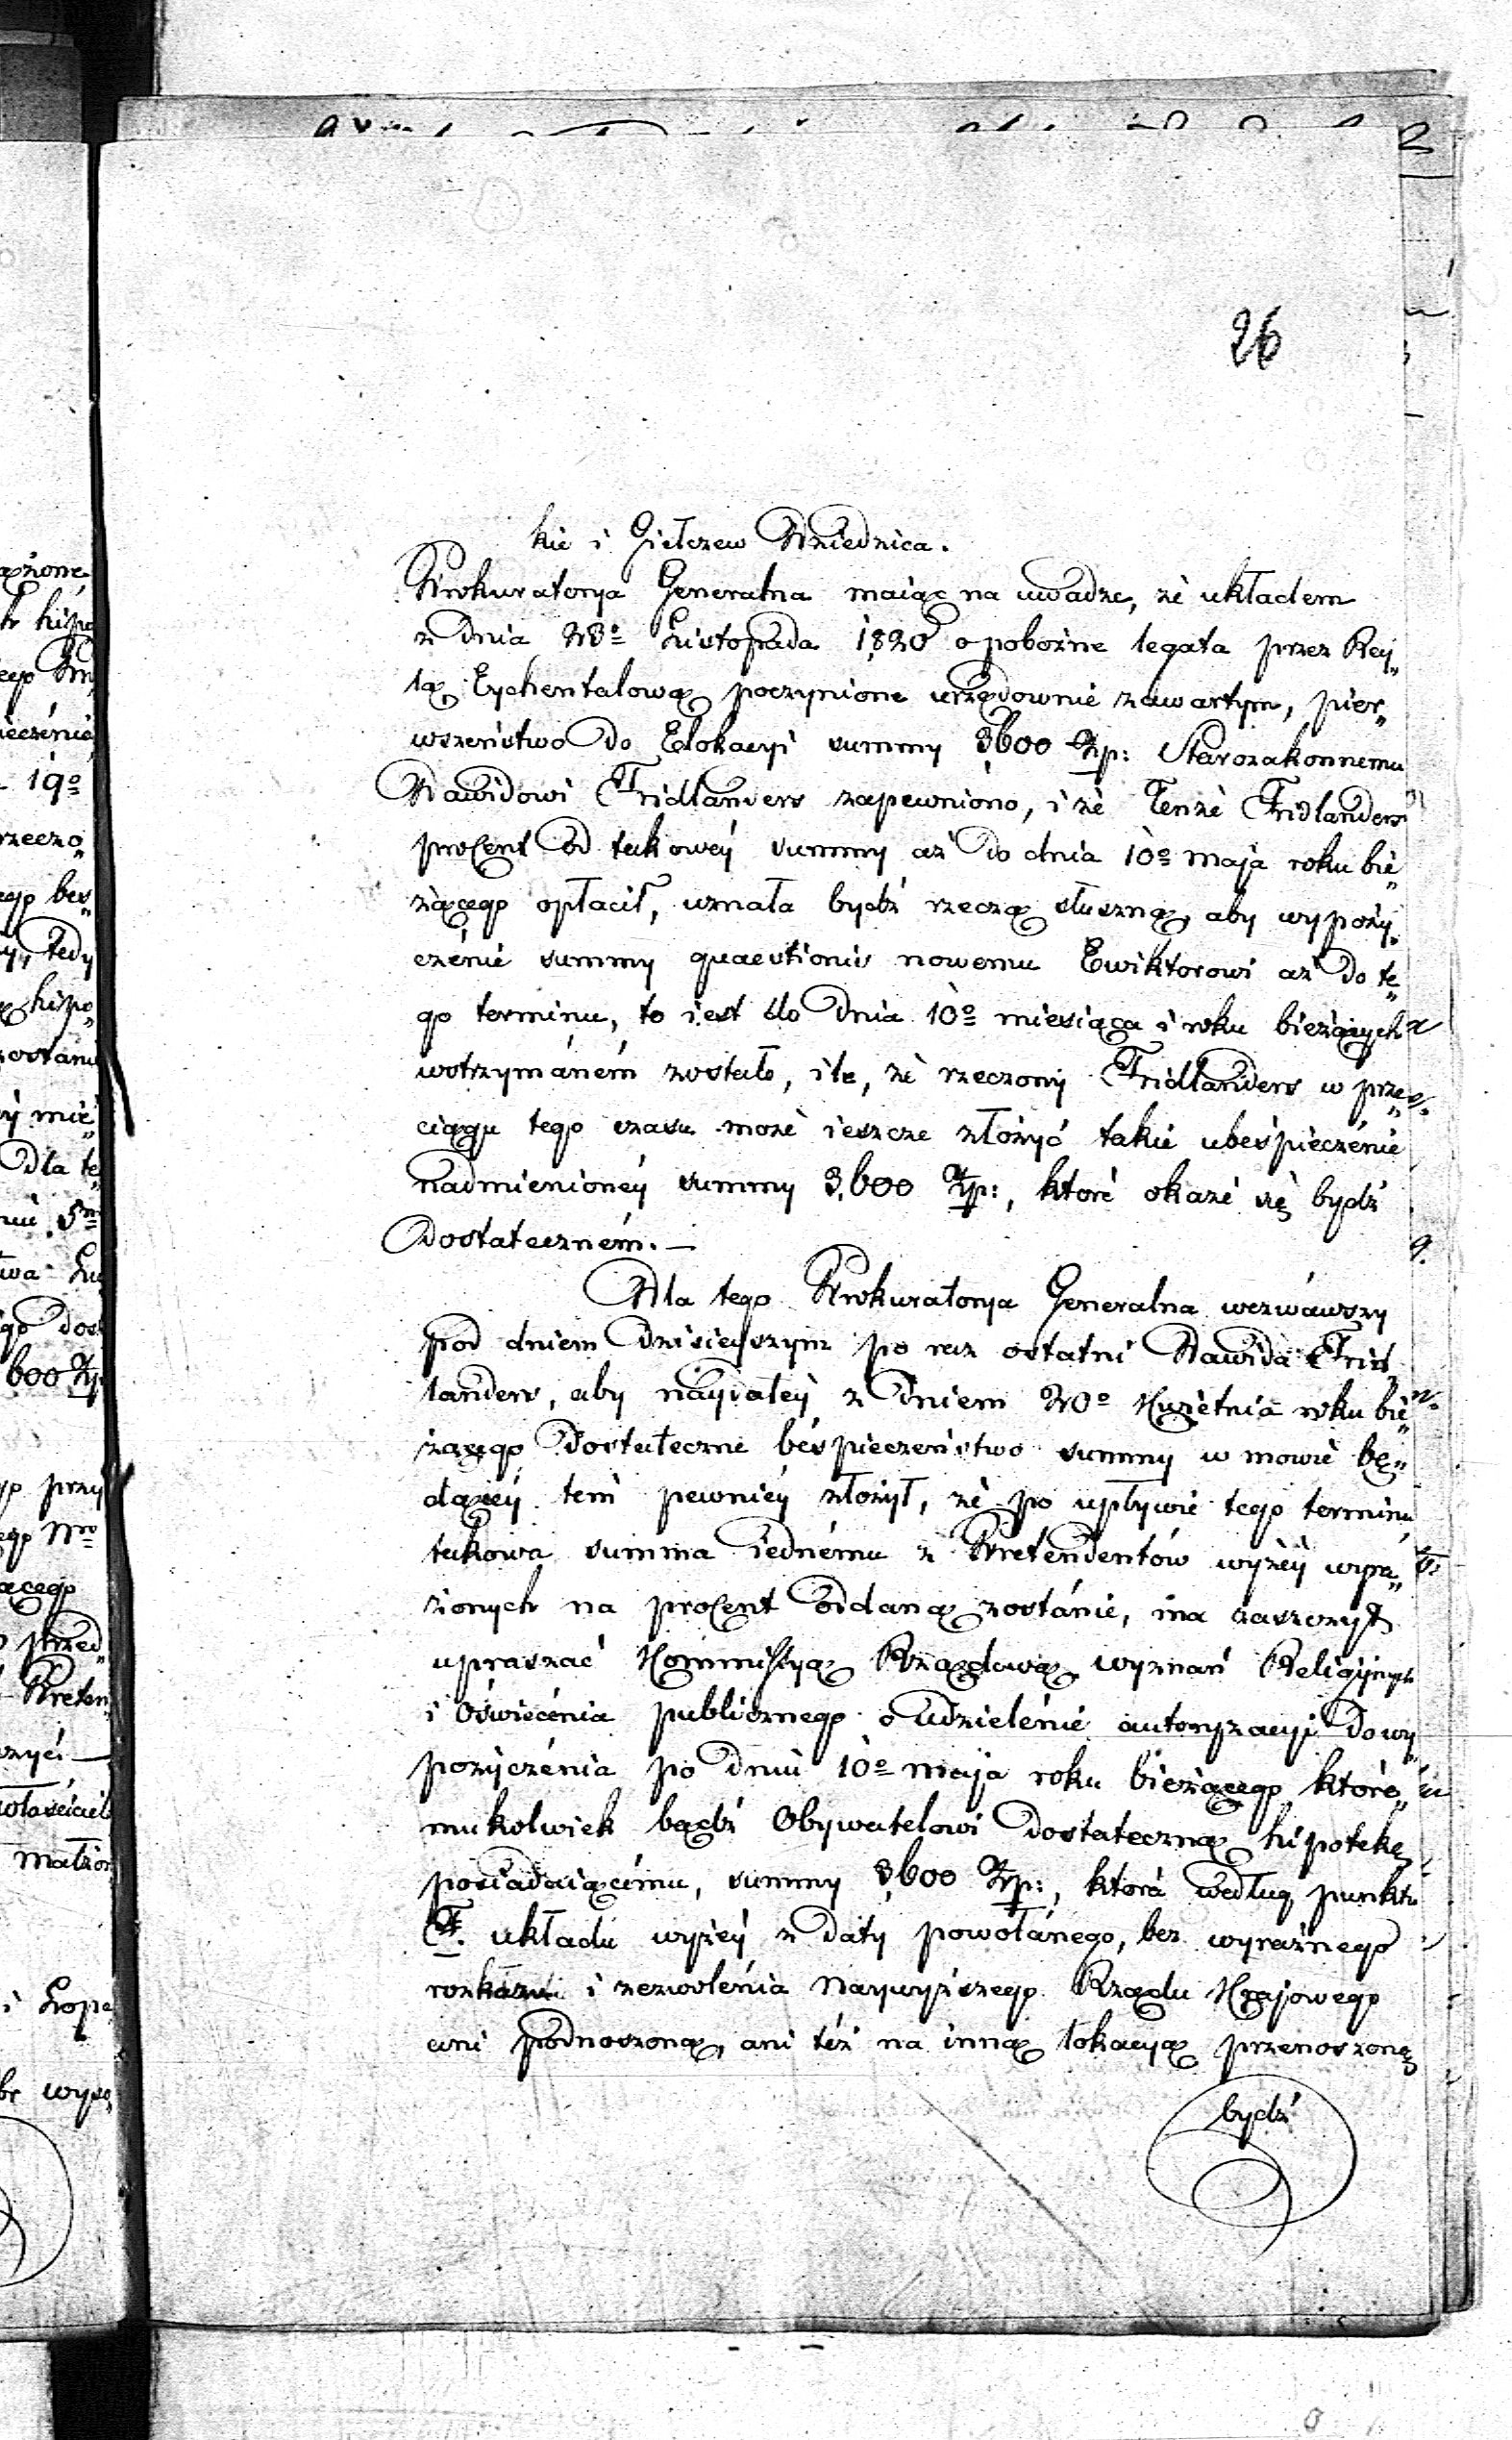 26
kie i Giełczew Dziedzica.
Prokuratorya Generalna maiąc na uwadze, że układem
z dnia 28º Listopada 1820 o pobożne legata przez Rej„
lę Eychentalową poczynione urzędownie zawartym, pier„
wszeństwo do Elokacyi summy 3,600 Złp: Starozakonnemu
Dawidowi Fridlanders zapewniono, i że Tenże Fridlanders
procent od takowéy summy aż do dnia 10º maja roku bie„
żącego opłacił, uznała bydź rzeczą słuszną, aby wypoży„
czénie summy quaestionis nowemu Ewiktorowi aż do te„
go terminu, to iest do dnia 10º miesiąca i roku bieżących
wstrzymáném zostało, ile, że rzeczony Fridlanders w prze„
ciągu tego czasu może ieszcze złożyć takie ubespieczénie
nadmienionéy summy 3,600 Złp:, które okaże się bydź
dostateczném. —
Dla tego Prokuratorya Generalna wezwáwszy
pod dniem dzisieyszym po raz ostatni Dawida Frid„
landers, aby naydaléy z dniem 20º Kwietnia roku bie„
żącego dostateczne béspieczeństwo summy w mowie bę„
dącéy tem pewniéy złożył, że po upływie tego terminu
takowa summa iednému z Pretendentów wyżéy wyra„
żonych na procent oddaną zostánie, ma zaszczyt
upraszać Kommissyą Rządową wyznań Religiynych
i Oświecénia publicznego o udzielénie autoryzacyi do wy„
pożyczénia po dniu 10º maja roku bieżącego które„
mukolwiek bądź Obywatelowi dostateczną hipotekę
posiadaiącému, summy 3,600 Złp:, która według punktu
F. układu wyżéy z daty powołánego, bez wyraźnego
rozkazu i zezwolénia Naywyższego Rządu Krajowego
ani podnoszoną, ani téż na inną lokacyą przenoszoną
bydź